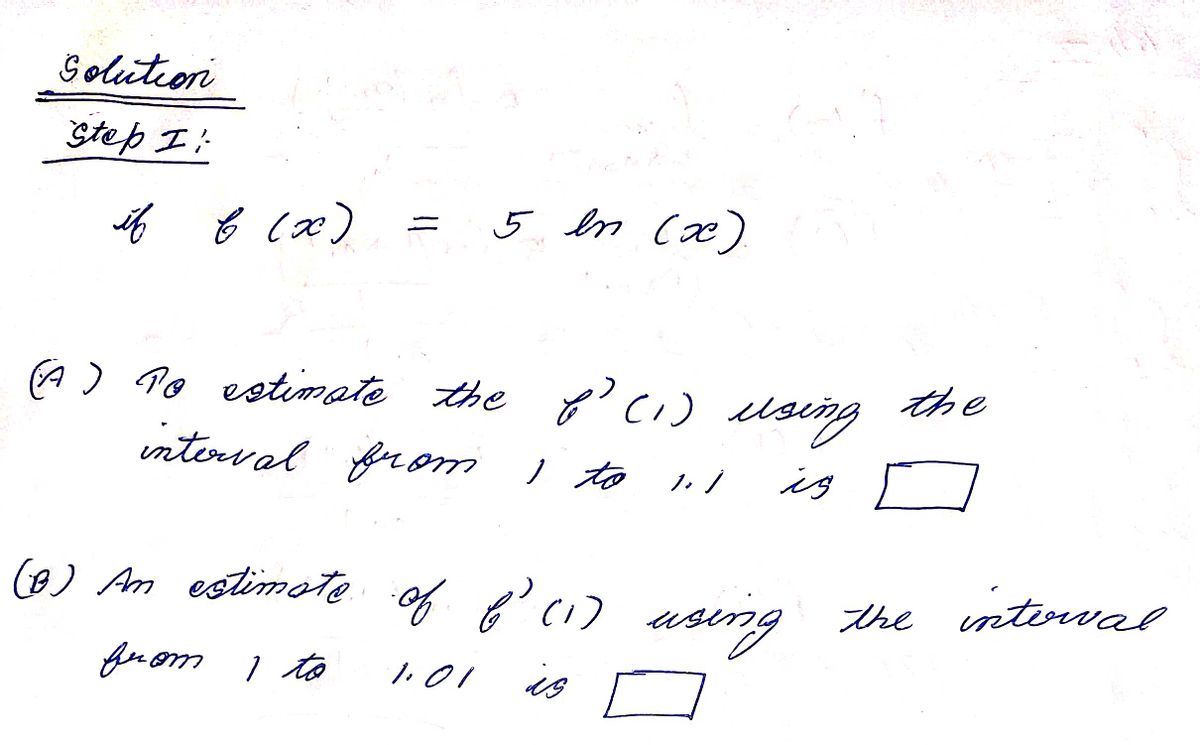 Solution
Step I :-
if f (x) = 5 ln (x)
(A) To estimate the f' (1) using the
interval from 1 to 1.1 is
(B) An estimate of f' (1) using the interval
from 1 to 1.01 is